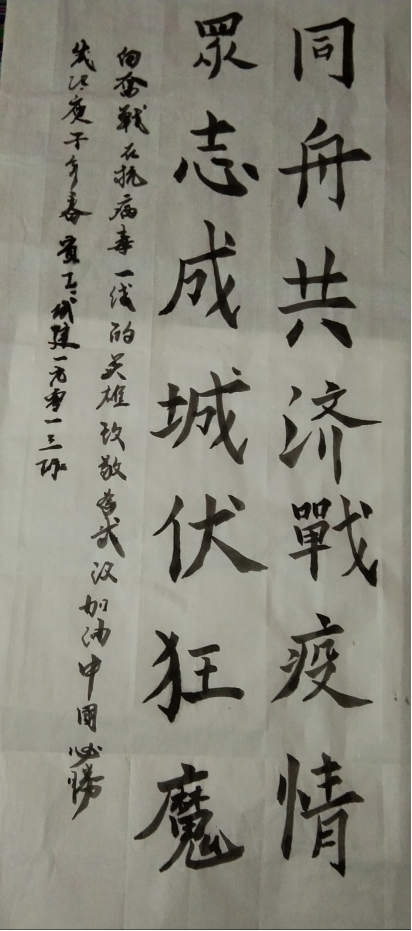 同舟共济戰疫情
眾志成城伏狂魔
向奮戰在抗病毒一线的英雄致敬為武汉加油中國必勝
庚子年春 城建一九零一三